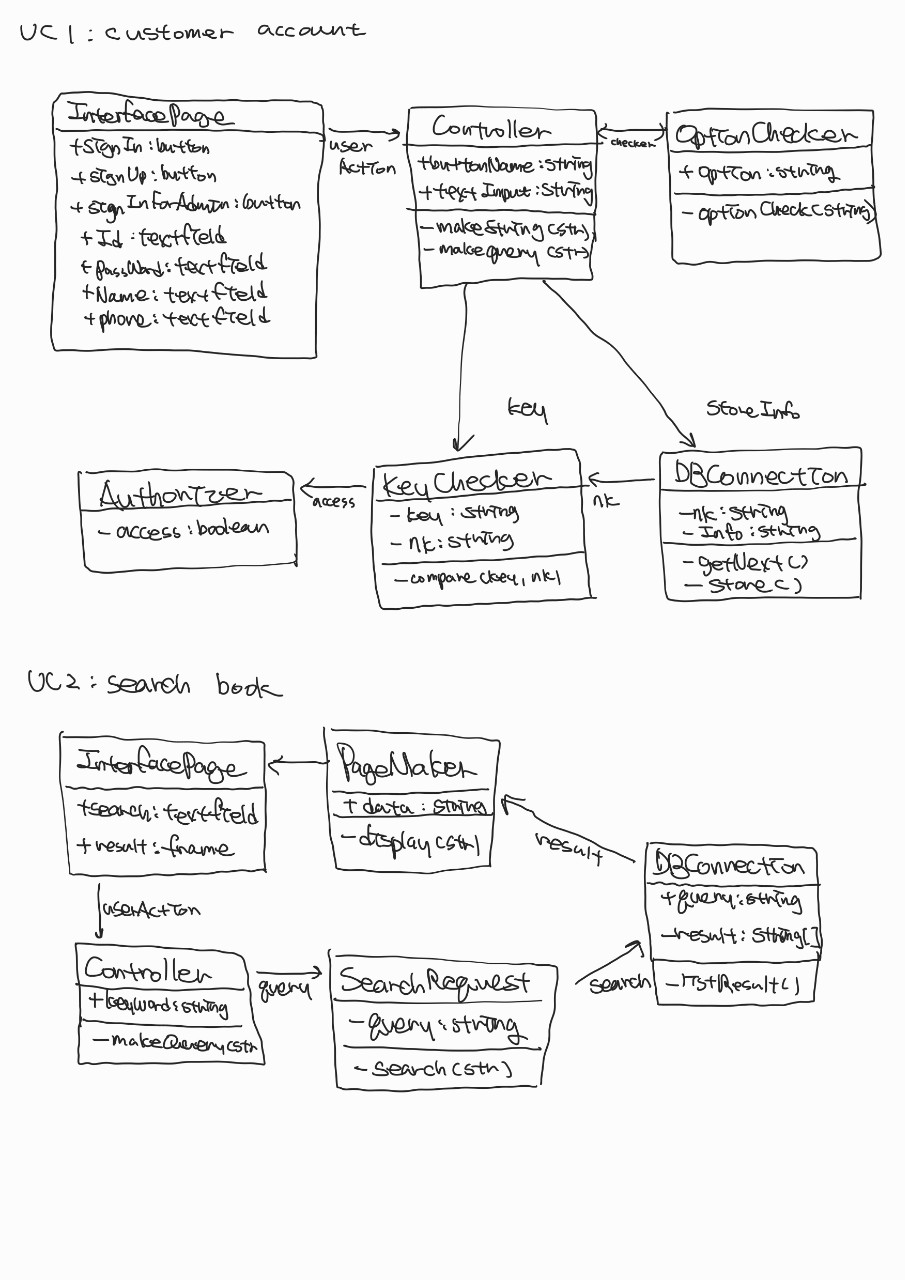 UC1: customer account
InterfacePage
+SignIn: button
+signUp: button
+signInForAdmin: button
+Id: textfield
+passWord: textfield
+Name: textfield
+phone: textfield
user
Action
Controller
+buttonName: string
+textInput: String
-makeString(str)
-makequery(str)
checker
OptionChecker
+option: string
-optionCheck(string)
key
storeInfo
Authorizer
-access: boolean
access
KeyChecker
-key: string
-nk: string
-compare(key, nk)
nk
DBConnection
-nk: string
-Info: string
-getNext()
-store()
UC2: search book
InterfacePage
+search: textfield
+result: fname
PageMaker
+data: string
-display(str)
result
DBConnection
+query: string
-result: string[]
-listResult()
userAction
Controller
+keyWord: string
-makeQuery(str
query
SearchRequest
-query: string
-search(str)
search